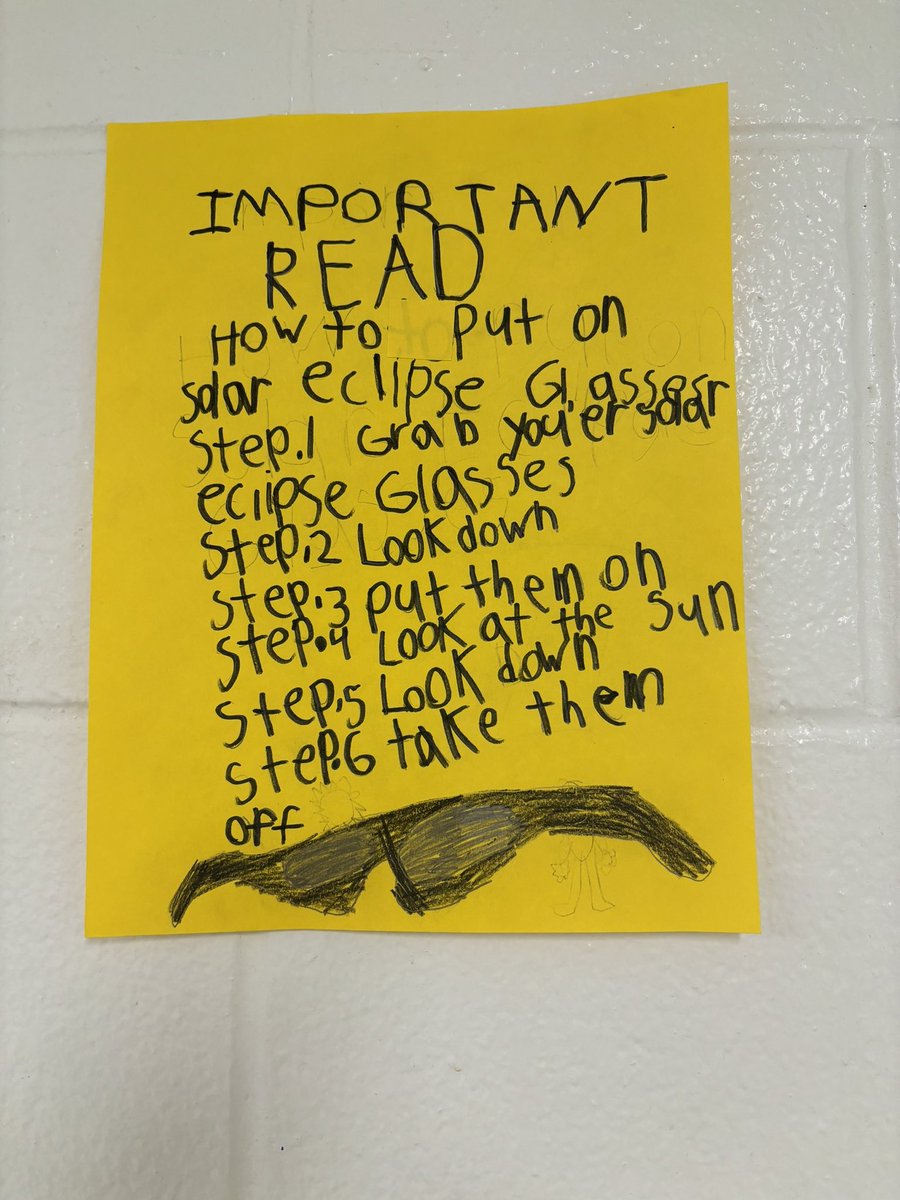 IMPORTANT
READ
How to put on
solar eclipse Glasses
Step.1 Grab youer solar
eclipse Glasses
Step.2 Look down
Step.3 put them on
Step.4 Look at the sun
Step.5 Look down
Step.6 take them
off